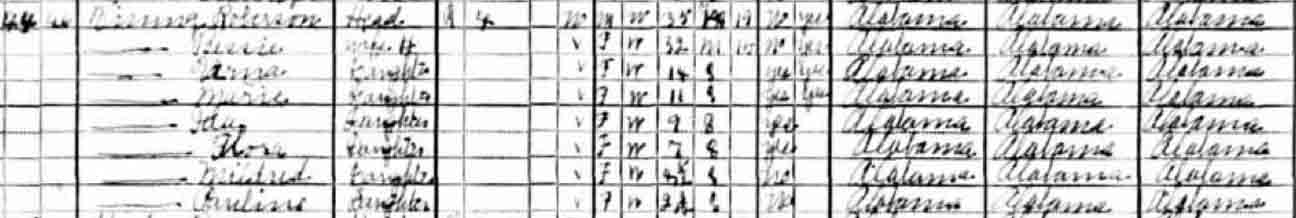 Roberson Head R 4 No M W 35 M 19 No yes Alabama Alabama Alabama
Bessie Wife H V F W 32 M No yes Alabama Alabama Alabama
Daughter V F W 14 S yes yes Alabama Alabama Alabama
Marie Daughter V F W 11 S yes yes Alabama Alabama Alabama
Ida Daughter V F W 9 S yes Alabama Alabama Alabama
Flora Daughter V F W 7 S yes Alabama Alabama Alabama
Mildred Daughter V F W S no Alabama Alabama Alabama
Pauline Daughter V F W S No Alabama Alabama Alabama